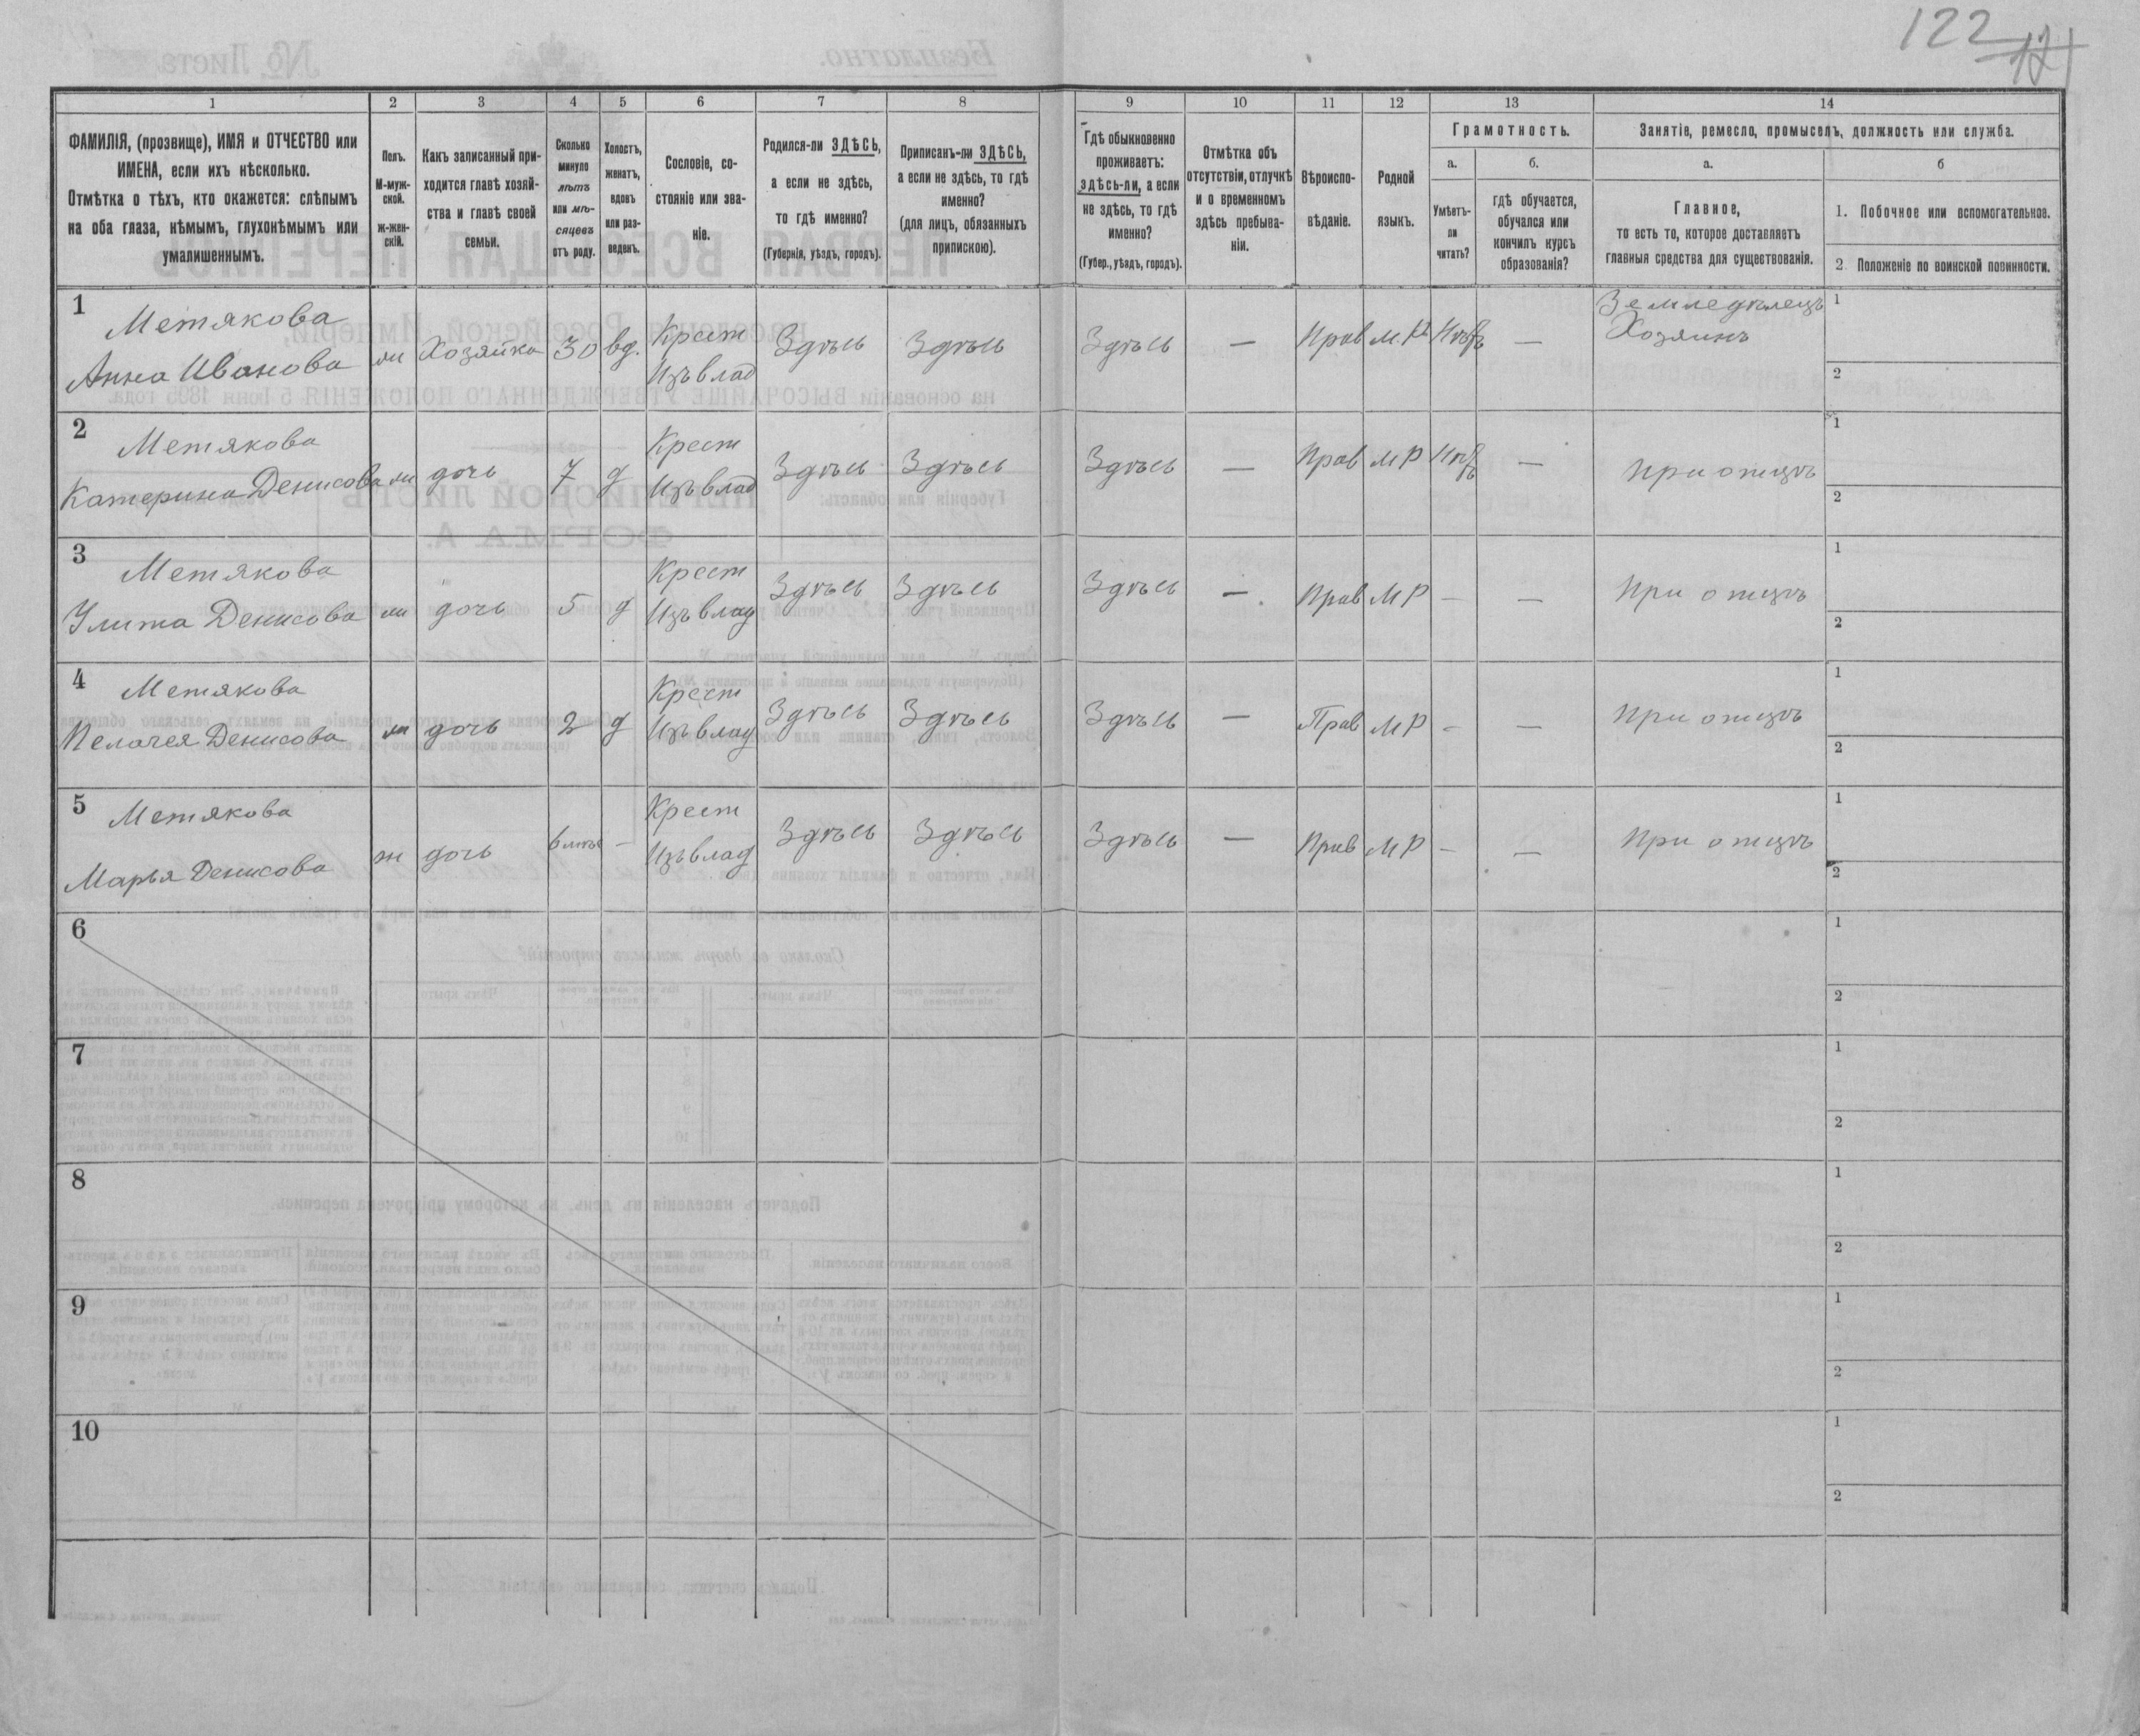 122
121
1 2 3 4 5 6 7 8 9 10 11 12 13 14
ФАМИЛІЯ, (прозвище), ИМЯ и ОТЧЕСТВО или
ИМЕНА, если ихъ нѣсколько.
Отмѣтка о тѣхъ, кто окажется: слѣпымъ
на оба глаза, нѣмымъ, глухонѣмымъ или
умалишеннымъ.
Полъ.
М-муж-
ской.
ж-жен-
скій.
Какъ записанный при-
ходится главѣ хозяй-
ства и главѣ своей
семьи.
Сколько
минуло
лѣтъ
или мѣ-
сяцевъ
отъ роду.
Холостъ,
женатъ,
вдовъ
или раз-
веденъ.
Сословіе, со-
стояніе или зва-
ніе.
Родился-ли ЗДѢСЬ,
а если не здѣсь,
то гдѣ именно?
(Губернія, уѣздъ, городъ).
Приписанъ-ли ЗДѢСЬ,
а если не здѣсь, то гдѣ
именно?
(для лицъ, обязанныхъ
припискою).
Гдѣ обыкновенно
проживаетъ:
здѣсь-ли, а если
не здѣсь, то гдѣ
именно?
(Губер., уѣздъ, городъ).
Отмѣтка объ
отсутствіи, отлучкѣ
и о временномъ
здѣсь пребыва-
ніи.
Вѣроиспо-
вѣданіе.
Родной
языкъ.
Грамотность.
а. б.
Умѣетъ-
ли
читать?
гдѣ обучается,
обучался или
кончилъ курсъ
образованія?
Занятіе, ремесло, промыселъ, должность или служба.
а. б
Главное,
то есть то, которое доставляетъ
главныя средства для существованія.
1. Побочное или вспомогательное.
2 Положеніе по воинской повинности.
1 Метякова Крест Земледѣлецъ 1
Анна Иванова Хозяйка 30 вд. Изъ влад Здѣсь Здѣсь Здѣсь — Прав — Хозяинъ
2
2 Метякова Крест 1
Катерина Денисова дочь 7 д Изъ влад Здѣсь Здѣсь Здѣсь — Прав М Р — При отцѣ
2
3 Метякова Крест 1
Улита Денисова дочь 5 д Изъ влад Здѣсь Здѣсь Здѣсь — Прав М Р — — При отцѣ
2
4 Метякова Крест 1
Пелагея Денисова дочь 2 д Изъ влад Здѣсь Здѣсь Здѣсь — Прав М Р — — При отцѣ
2
5 Метякова Крест 1
Марья Денисова ж дочь — Изъ влад Здѣсь Здѣсь Здѣсь — Прав М Р — — При отцѣ
2
6 1
2
7 1
2
8 1
2
9 1
2
10 1
2